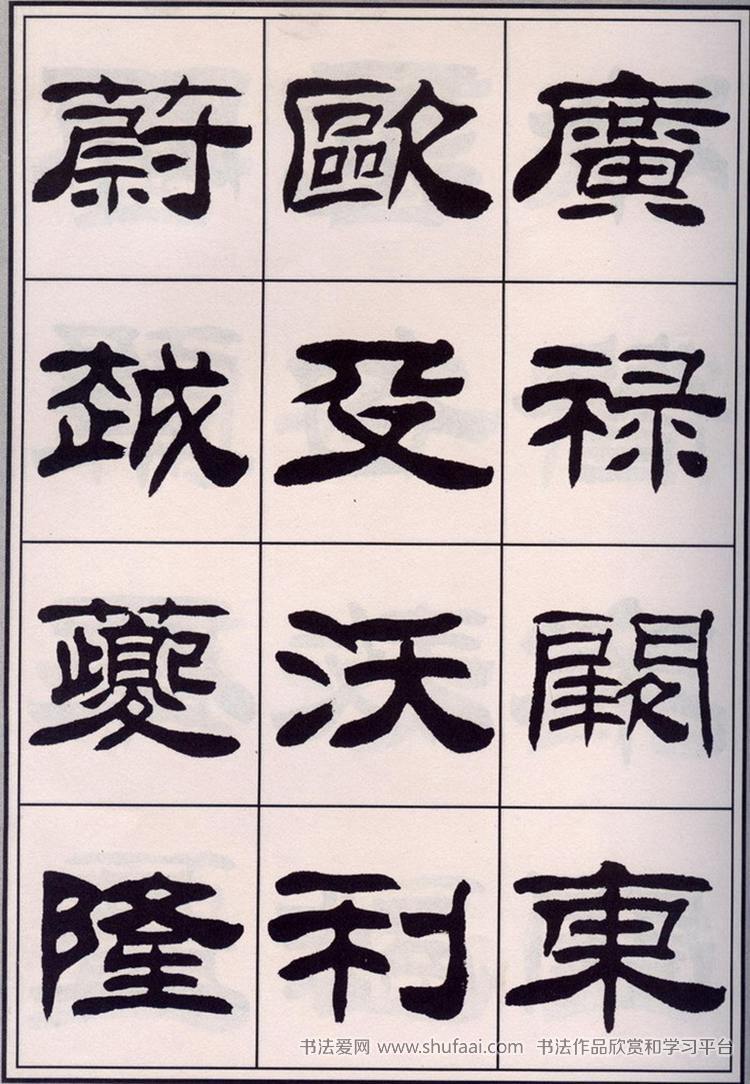 廣禄闕東
歐殳沃利
蔚越夔隆
书法爱网 www.shufaai.com 书法作品欣赏和学习平台